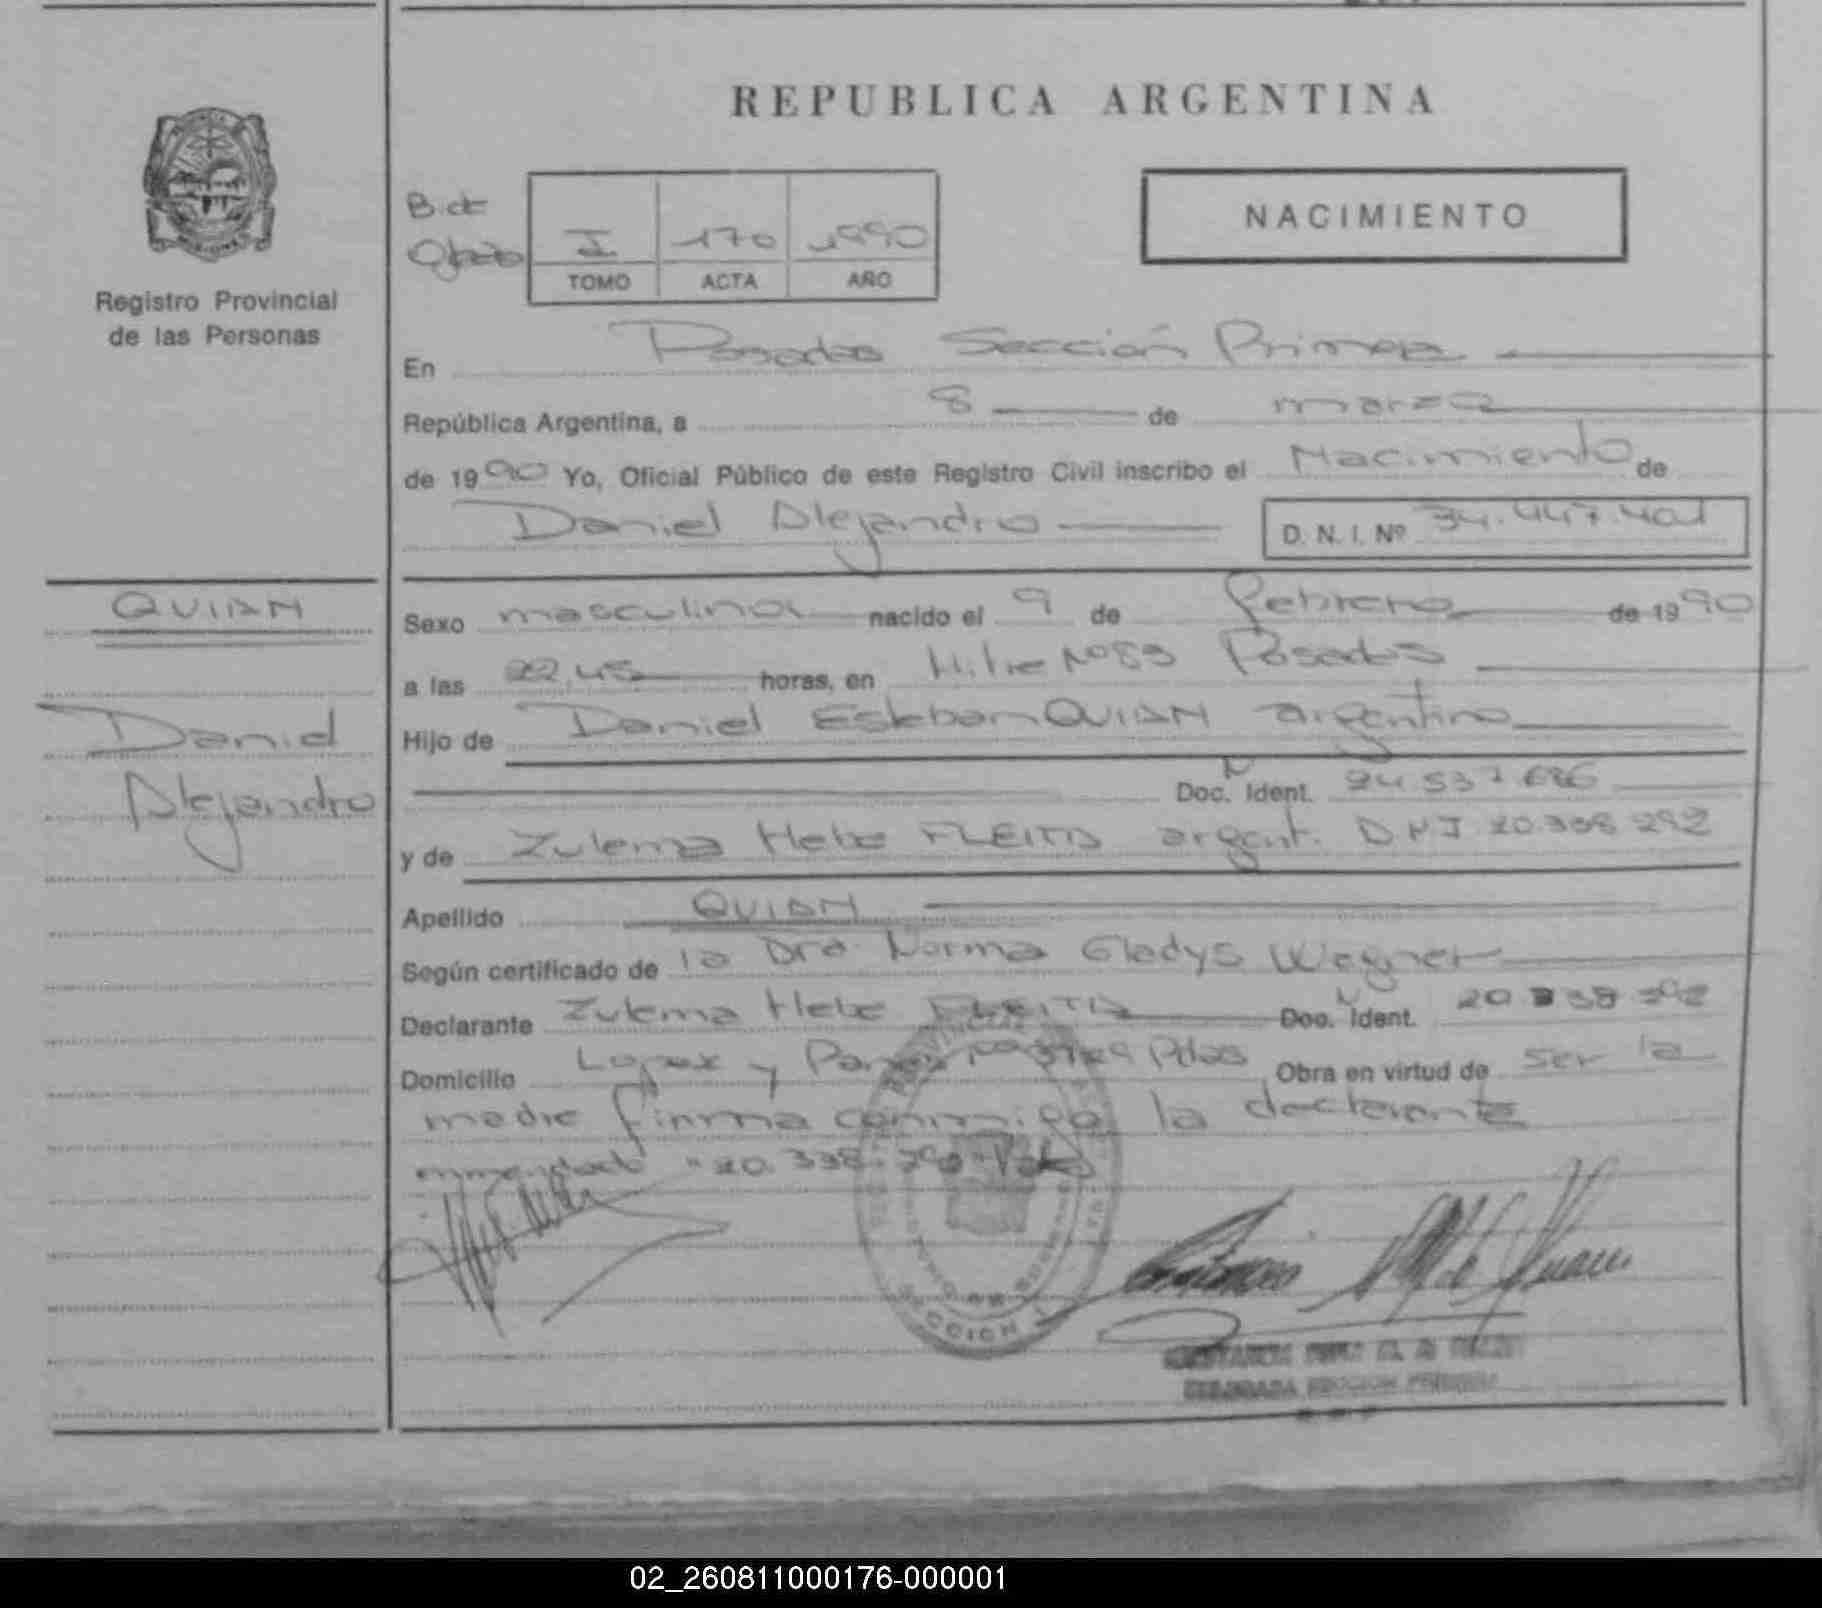 REPUBLICA ARGENTINA
NACIMIENTO
I 170 1990
TOMO ACTA AÑO
Registro Provincial
de las Personas
En Posadas Sección Primera
República Argentina, a 8 de marzo
de 1990 Yo, Oficial Público de este Registro Civil inscribo el Nacimiento de
Daniel Alejandro D. N. I. Nº 34.447.401
QUIAN
Daniel
Alejandro
Sexo masculino nacido el 9 de febrero de 1990
a las 22,45 horas, en Mitre Nº 83 Posadas
Hijo de Daniel Esteban QUIAN argentino
Doc. Ident. 24.537.686
y de Zulema Hebe FLEITA argent. D.N.I 20.338.292
Apellido QUIAN
Según certificado de la Dra. Norma Gladys Wagner
Declarante Zulema Hebe FLEITA Doc. Ident. 20.338.292
Domicilio Lopez y Pdas Obra en virtud de ser la
madre firma conmigo la declarante
enmendado "20.338.292" Vale
SECCION 1
DELEGADA SECCION PRIMERA
02_260811000176-000001